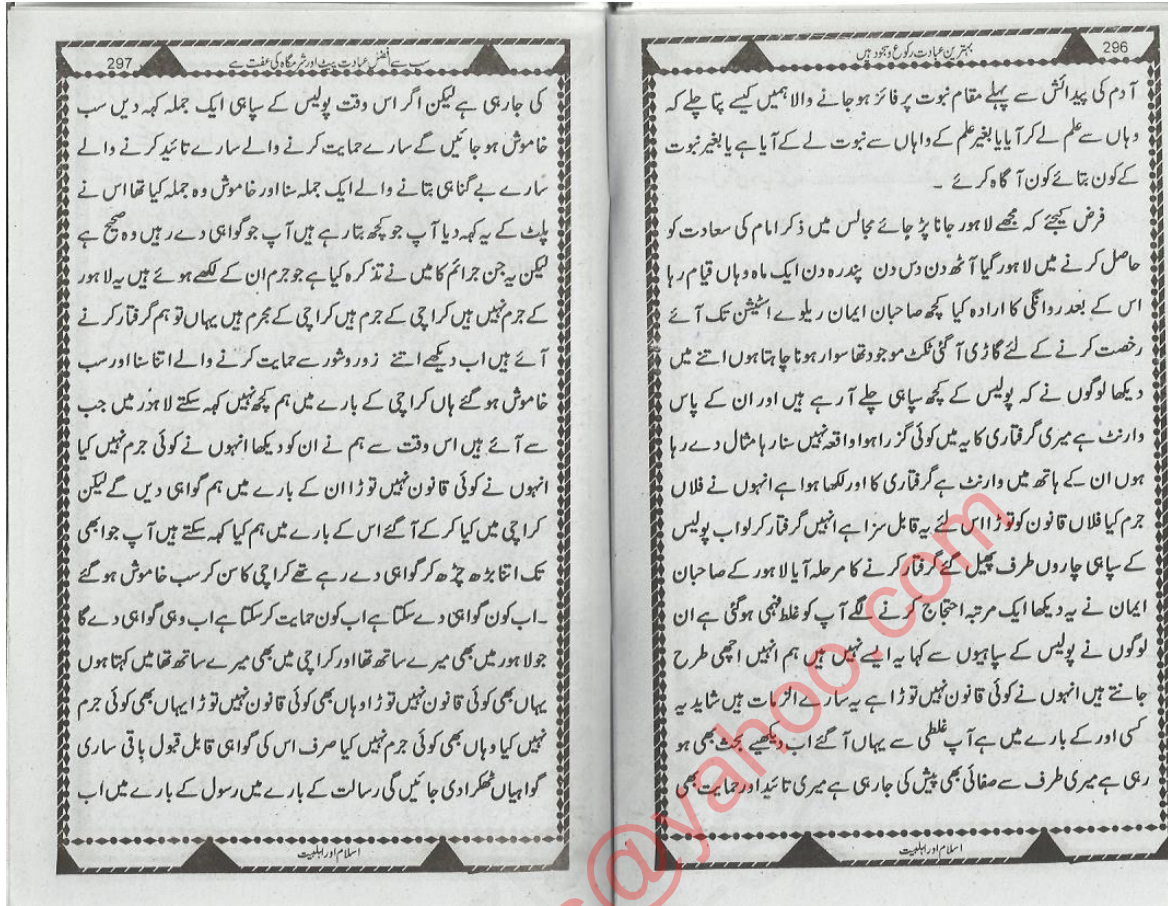 296
بہترین عبادت رکوع و سجود ہیں
آدم کی پیدائش سے پہلے مقام نبوت پر فائز ہوجانے والا ہمیں کیسے پتا چلے کہ
وہاں سے علم لے کر آیا یا بغیر علم کے واہاں سے نبوت لے کے آیا ہے یا بغیر نبوت
کے کون بتائے کون آگاہ کرائے ۔
فرض کیجئے کہ مجھے لاہور جانا پڑ جائے مجالس میں ذکر امام کی سعادت کو
حاصل کرنے میں لاہور گیا آٹھ دن دس دن پندرہ دن ایک ماہ وہاں قیام رہا
اس کے بعد روانگی کا ارادہ کیا کچھ صاحبان ایمان ریلوے اسٹیشن تک آئے
رخصت کرنے کے لئے گاڑی آگئی ٹکٹ موجود تھا سوار ہونا چاہتا ہوں اتنے میں
دیکھا لوگوں نے کہ پولیس کے کچھ سپاہی چلے آرہے ہیں اور ان کے پاس
وارنٹ ہے میری گرفتاری کا یہ میں کوئی گزرا ہوا واقعہ نہیں سنا رہا مثال دے رہا
ہوں ان کے ہاتھ میں وارنٹ ہے گرفتاری کا اور لکھا ہوا ہے انہوں نے فلاں
جرم کیا فلاں قانون کو توڑا اس لئے یہ قابل سزا ہے انہیں گرفتار کرلو اب پولیس
کے سپاہی چاروں طرف پھیل گئے گرفتار کرنے کا مرحلہ آیا لاہور کے صاحبان
ایمان نے یہ دیکھا ایک مرتبہ احتجاج کرنے لگے آپ کو غلط فہمی ہوگئی ہے ان
لوگوں نے پولیس کے سپاہیوں سے کہا یہ ایسے نہیں ہیں ہم انہیں اچھی طرح
جانتے ہیں انہوں نے کوئی قانون نہیں توڑا ہے یہ سارے الزمات ہیں شاید یہ
کسی اور کے بارے میں ہے آپ غلطی سے یہاں آگئے اب دیکھیے بحث بھی ہو
رہی ہے میری طرف سے صفائی بھی پیش کی جارہی ہے میری تائید اور حمایت بھی
اسلام اور اہلبیت
297
سب سے افضل عبادت پیٹ اور شرمگاہ کی عفت ہے
کی جارہی ہے لیکن اگر اس وقت پولیس کے سپاہی ایک جملہ کہہ دیں سب
خاموش ہوجائیں گے سارے حمایت کرنے والے سارے تائید کرنے والے
سارے بے گناہی بتانے والے ایک جملہ سنا اور خاموش وہ جملہ کیا تھا اس نے
پلٹ کے یہ کہہ دیا آپ جو کچھ بتا رہے ہیں آپ جو گواہی دے رہیں وہ صحیح ہے
لیکن یہ جن جرائم کا میں نے تذکرہ کیا ہے جو جرم ان کے لکھے ہوئے ہیں یہ لاہور
کے جرم نہیں ہیں کراچی کے جرم ہیں کراچی کے مجرم ہیں یہاں تو ہم گرفتار کرنے
آئے ہیں اب دیکھے اتنے زور و شور سے حمایت کرنے والے اتنا سنا اور سب
خاموش ہوگئے ہاں کراچی کے بارے میں ہم کچھ نہیں کہہ سکتے لاہور میں جب
سے آئے ہیں اس وقت سے ہم نے ان کو دیکھا انہوں نے کوئی جرم نہیں کیا
انہوں نے کوئی قانون نہیں توڑا ان کے بارے میں ہم گواہی دیں گے لیکن
کراچی میں کیا کرکے آگئے اس کے بارے میں ہم کیا کہہ سکتے ہیں آپ جو ابھی
تک اتنا بڑھ چڑھ کر گواہی دے رہے تھے کراچی کا سن کر سب خاموش ہوگئے
۔اب کون گواہی دے سکتا ہے اب کون حمایت کرسکتا ہے اب وہی گواہی دے گا
جو لاہور میں بھی میرے ساتھ تھا اور کراچی میں بھی میرے ساتھ تھا میں کہتا ہوں
یہاں بھی کوئی قانون نہیں توڑا وہاں بھی کوئی قانون نہیں توڑا یہاں بھی کوئی جرم
نہیں کیا وہاں بھی کوئی جرم نہیں کیا صرف اس کی گواہی قابل قبول باقی ساری
گواہیاں ٹھکرا دی جائیں گی رسالت کے بارے میں رسول کے بارے میں اب
اسلام اور اہلبیت
s@yahoo.com